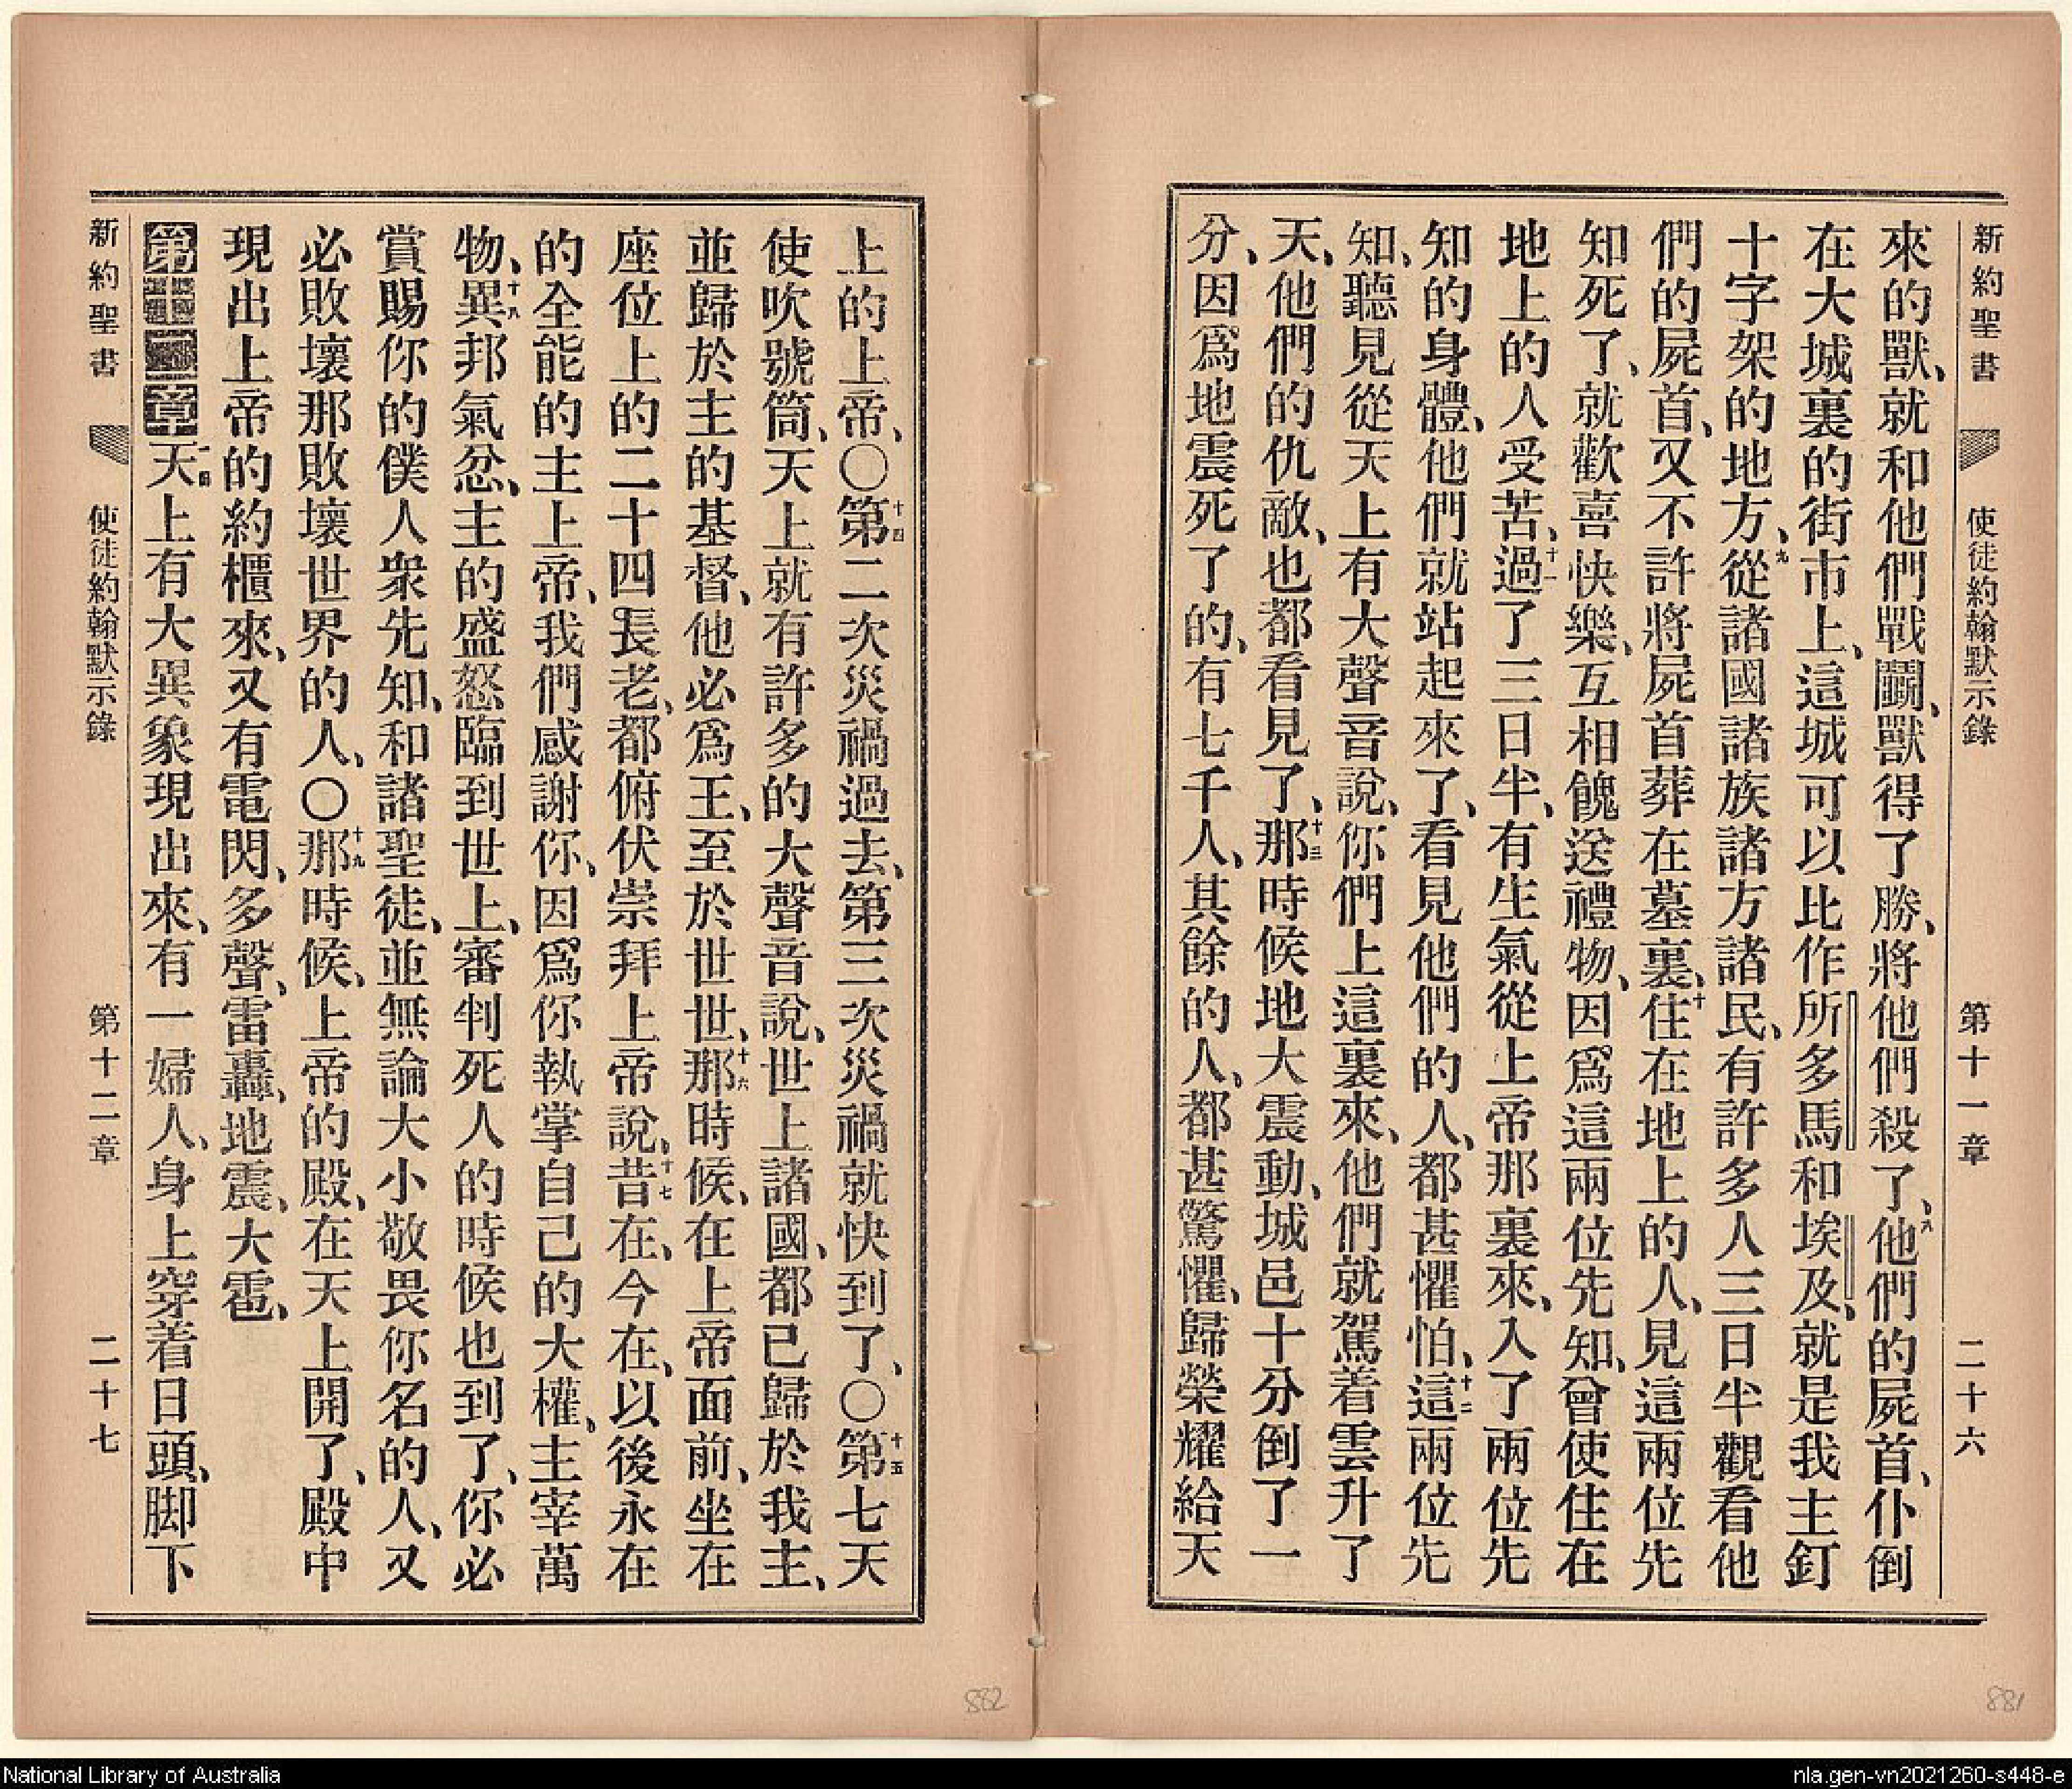 新約聖書 使徒約翰默示錄 第十一章 二十六
來的獸、就和他們戰鬭、獸得了勝、將他們殺了、八他們的屍首、仆倒
在大城裏的街市上、這城可以比作所多馬和埃及、就是我主釘
十字架的地方、九從諸國諸族諸方諸民、有許多人三日半觀看他
們的屍首、又不許將屍首葬在墓裏、十住在地上的人、見這兩位先
知死了、就歡喜快樂、互相餽送禮物、因爲這兩位先知、曾使住在
地上的人受苦、十一過了三日半、有生氣從上帝那裏來、入了兩位先
知的身體、他們就站起來了、看見他們的人、都甚懼怕、十二這兩位先
知、聽見從天上有大聲音說、你們上這裏來、他們就駕着雲升了
天、他們的仇敵、也都看見了、十三那時候地大震動、城邑十分倒了一
分、因爲地震死了的、有七千人、其餘的人、都甚驚懼、歸榮耀給天
上的上帝、〇十四第二次災禍過去、第三次災禍就快到了、〇十五第七天
使吹號筒、天上就有許多的大聲音說、世上諸國、都已歸於我主、
並歸於主的基督、他必爲王、至於世世、十六那時候、在上帝面前、坐在
座位上的二十四長老、都俯伏崇拜上帝說、十七昔在、今在、以後永在
的全能的主上帝、我們感謝你、因爲你執掌自己的大權、主宰萬
物、十八異邦氣忿、主的盛怒臨到世上、審判死人的時候也到了、你必
賞賜你的僕人衆先知、和諸聖徒、並無論大小敬畏你名的人、又
必敗壞那敗壞世界的人、〇十九那時候、上帝的殿、在天上開了、殿中
現出上帝的約櫃來、又有電閃、多聲、雷轟、地震、大雹、
第十二章一節天上有大異象現出來、有一婦人、身上穿着日頭、脚下
新約聖書 使徒約翰默示錄 第十二章 二十七
882
881
National Library of Australia
nla.gen-vn2021260-s448-e